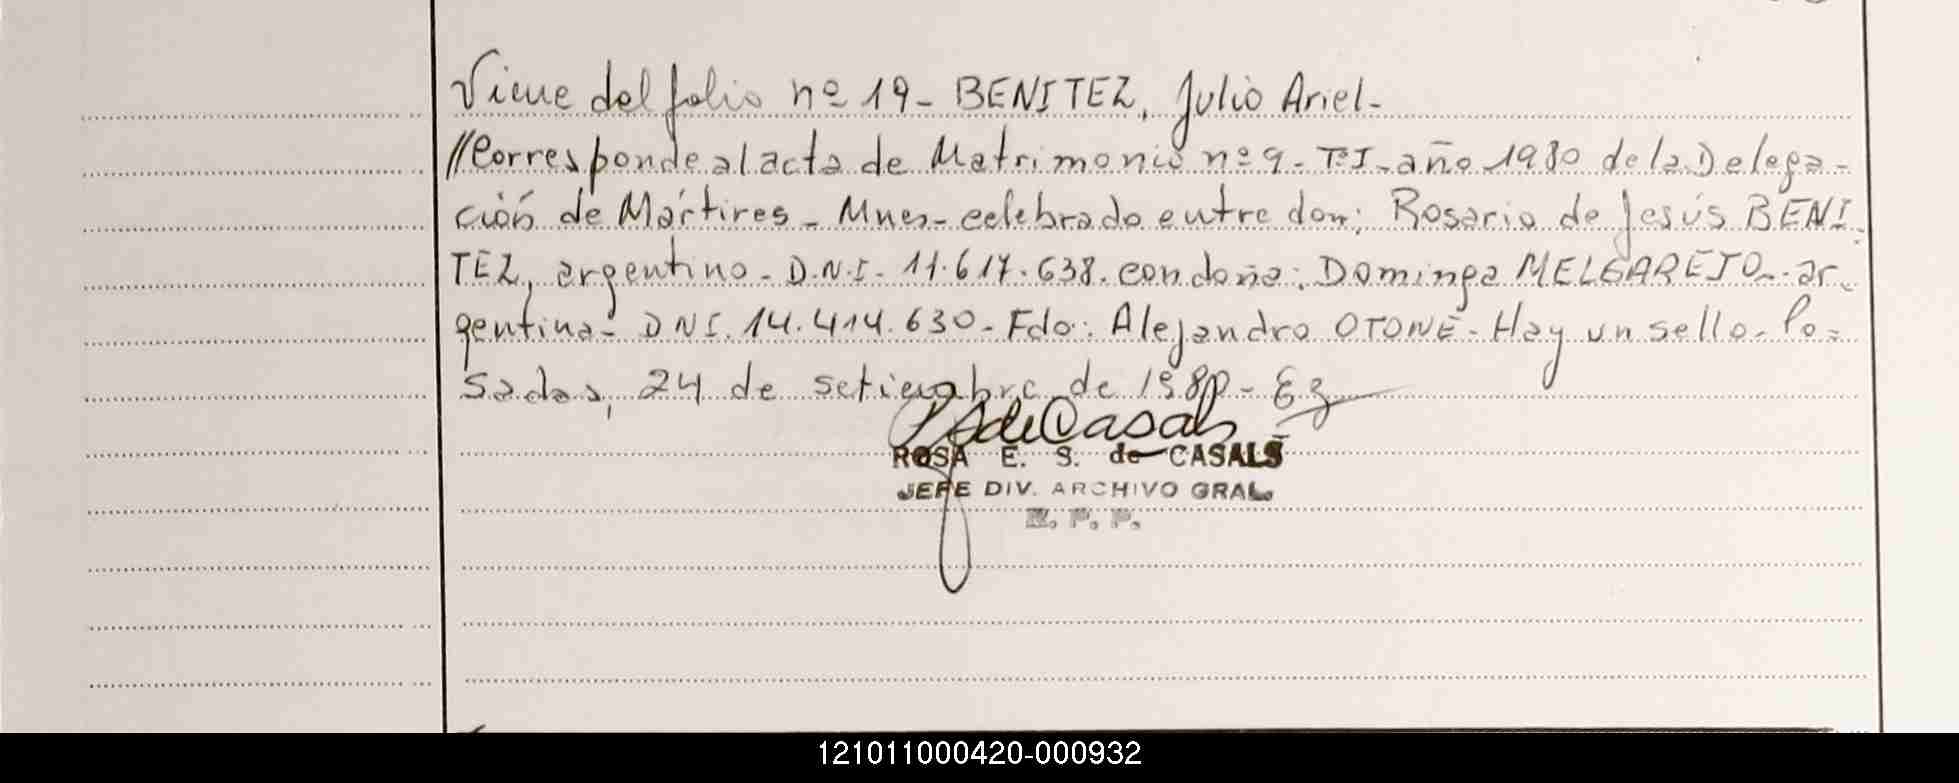 Viene del folio nº 19- BENITEZ, Julio Ariel-
//Corresponde al acta de Matrimonio nº 9- Tº I- año 1980 de la Delega-
ción de Mártires- Mnes- celebrado entre don: Rosario de Jesús BENI-
TEZ, argentino- D.N.I- 11.617.638. con doña: Dominga MELGAREJO- ar-
gentina- DNI. 14.414.630- Fdo: Alejandro OTONE- Hay un sello- Po=
sadas, 24 de setiembre de 1980-
ROSA E. S. de CASALS
JEFE DIV. ARCHIVO GRAL.
R. P. P.
121011000420-000932